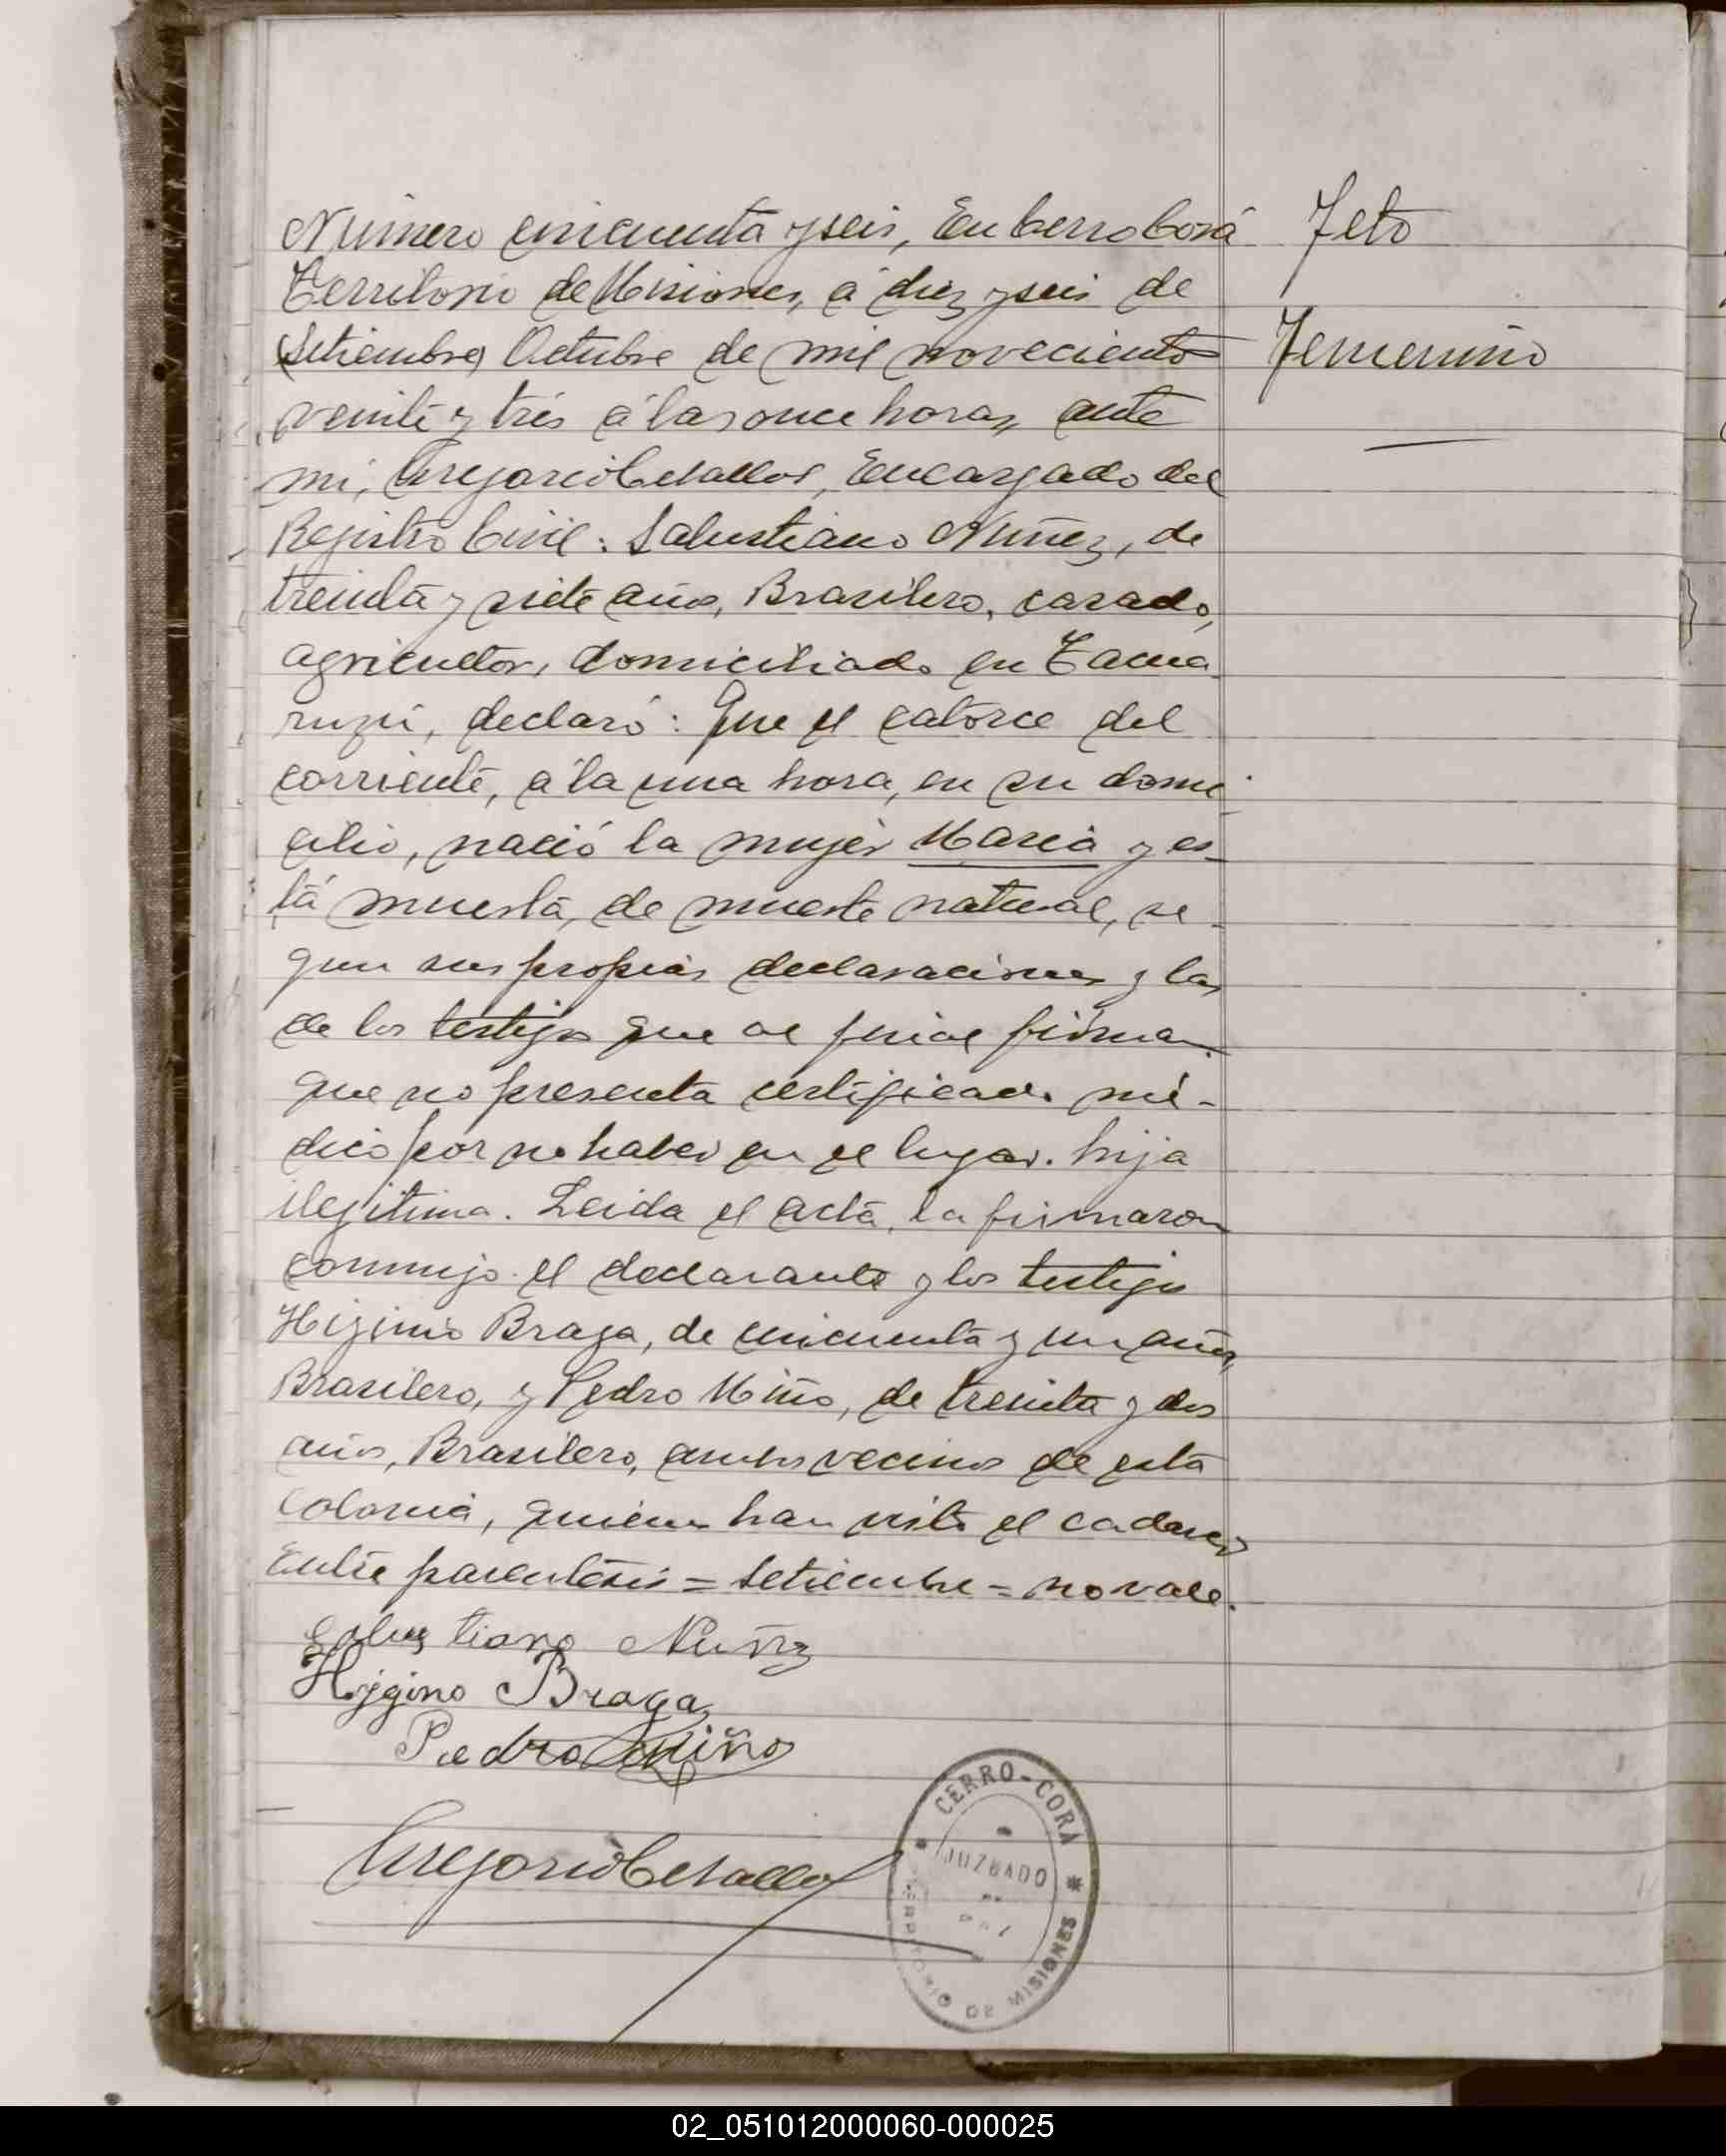 Número cincuenta y seis, En Cerro Corá
Territorio de Misiones, á diez y seis de
(Setiembre) Octubre de mil novecientos
veinte y tres á las once horas, ante
mi, Gregorio Cevallos, Encargado del
Registro Civil: Salustiano Nuñez, de
treinta y siete años, Brasilero, casado,
agricultor, domiciliado en Tacua
ruzú, declaró: Que el catorce del
corriente, á la una hora, en su domi
cilio, nació la mujer Maria y es-
tá muerta, de muerte natural, se-
gun sus propias declaraciones y las
de los testigos que al final firman.
que no presenta certificado mé-
dico por no haber en el lugar. hija
ilegitima. Leida el acta, la firmaron
conmigo el declarante y los testigos
Higinio Braga, de cincuenta y un años,
Brasilero, y Pedro Miño, de treinta y dos
años, Brasilero, ambos vecinos de esta
Colonia, quienes han visto el cadaver
Entre parentesis = Setiembre = no vale.
Salustiano Nuñz
Higino Braga
Pedro Miño
Gregorio Cevallos
CERRO-CORÁ
JUZGADO
TERRITORIO DE MISIONES
Feto
Femenino
02_051012000060-000025